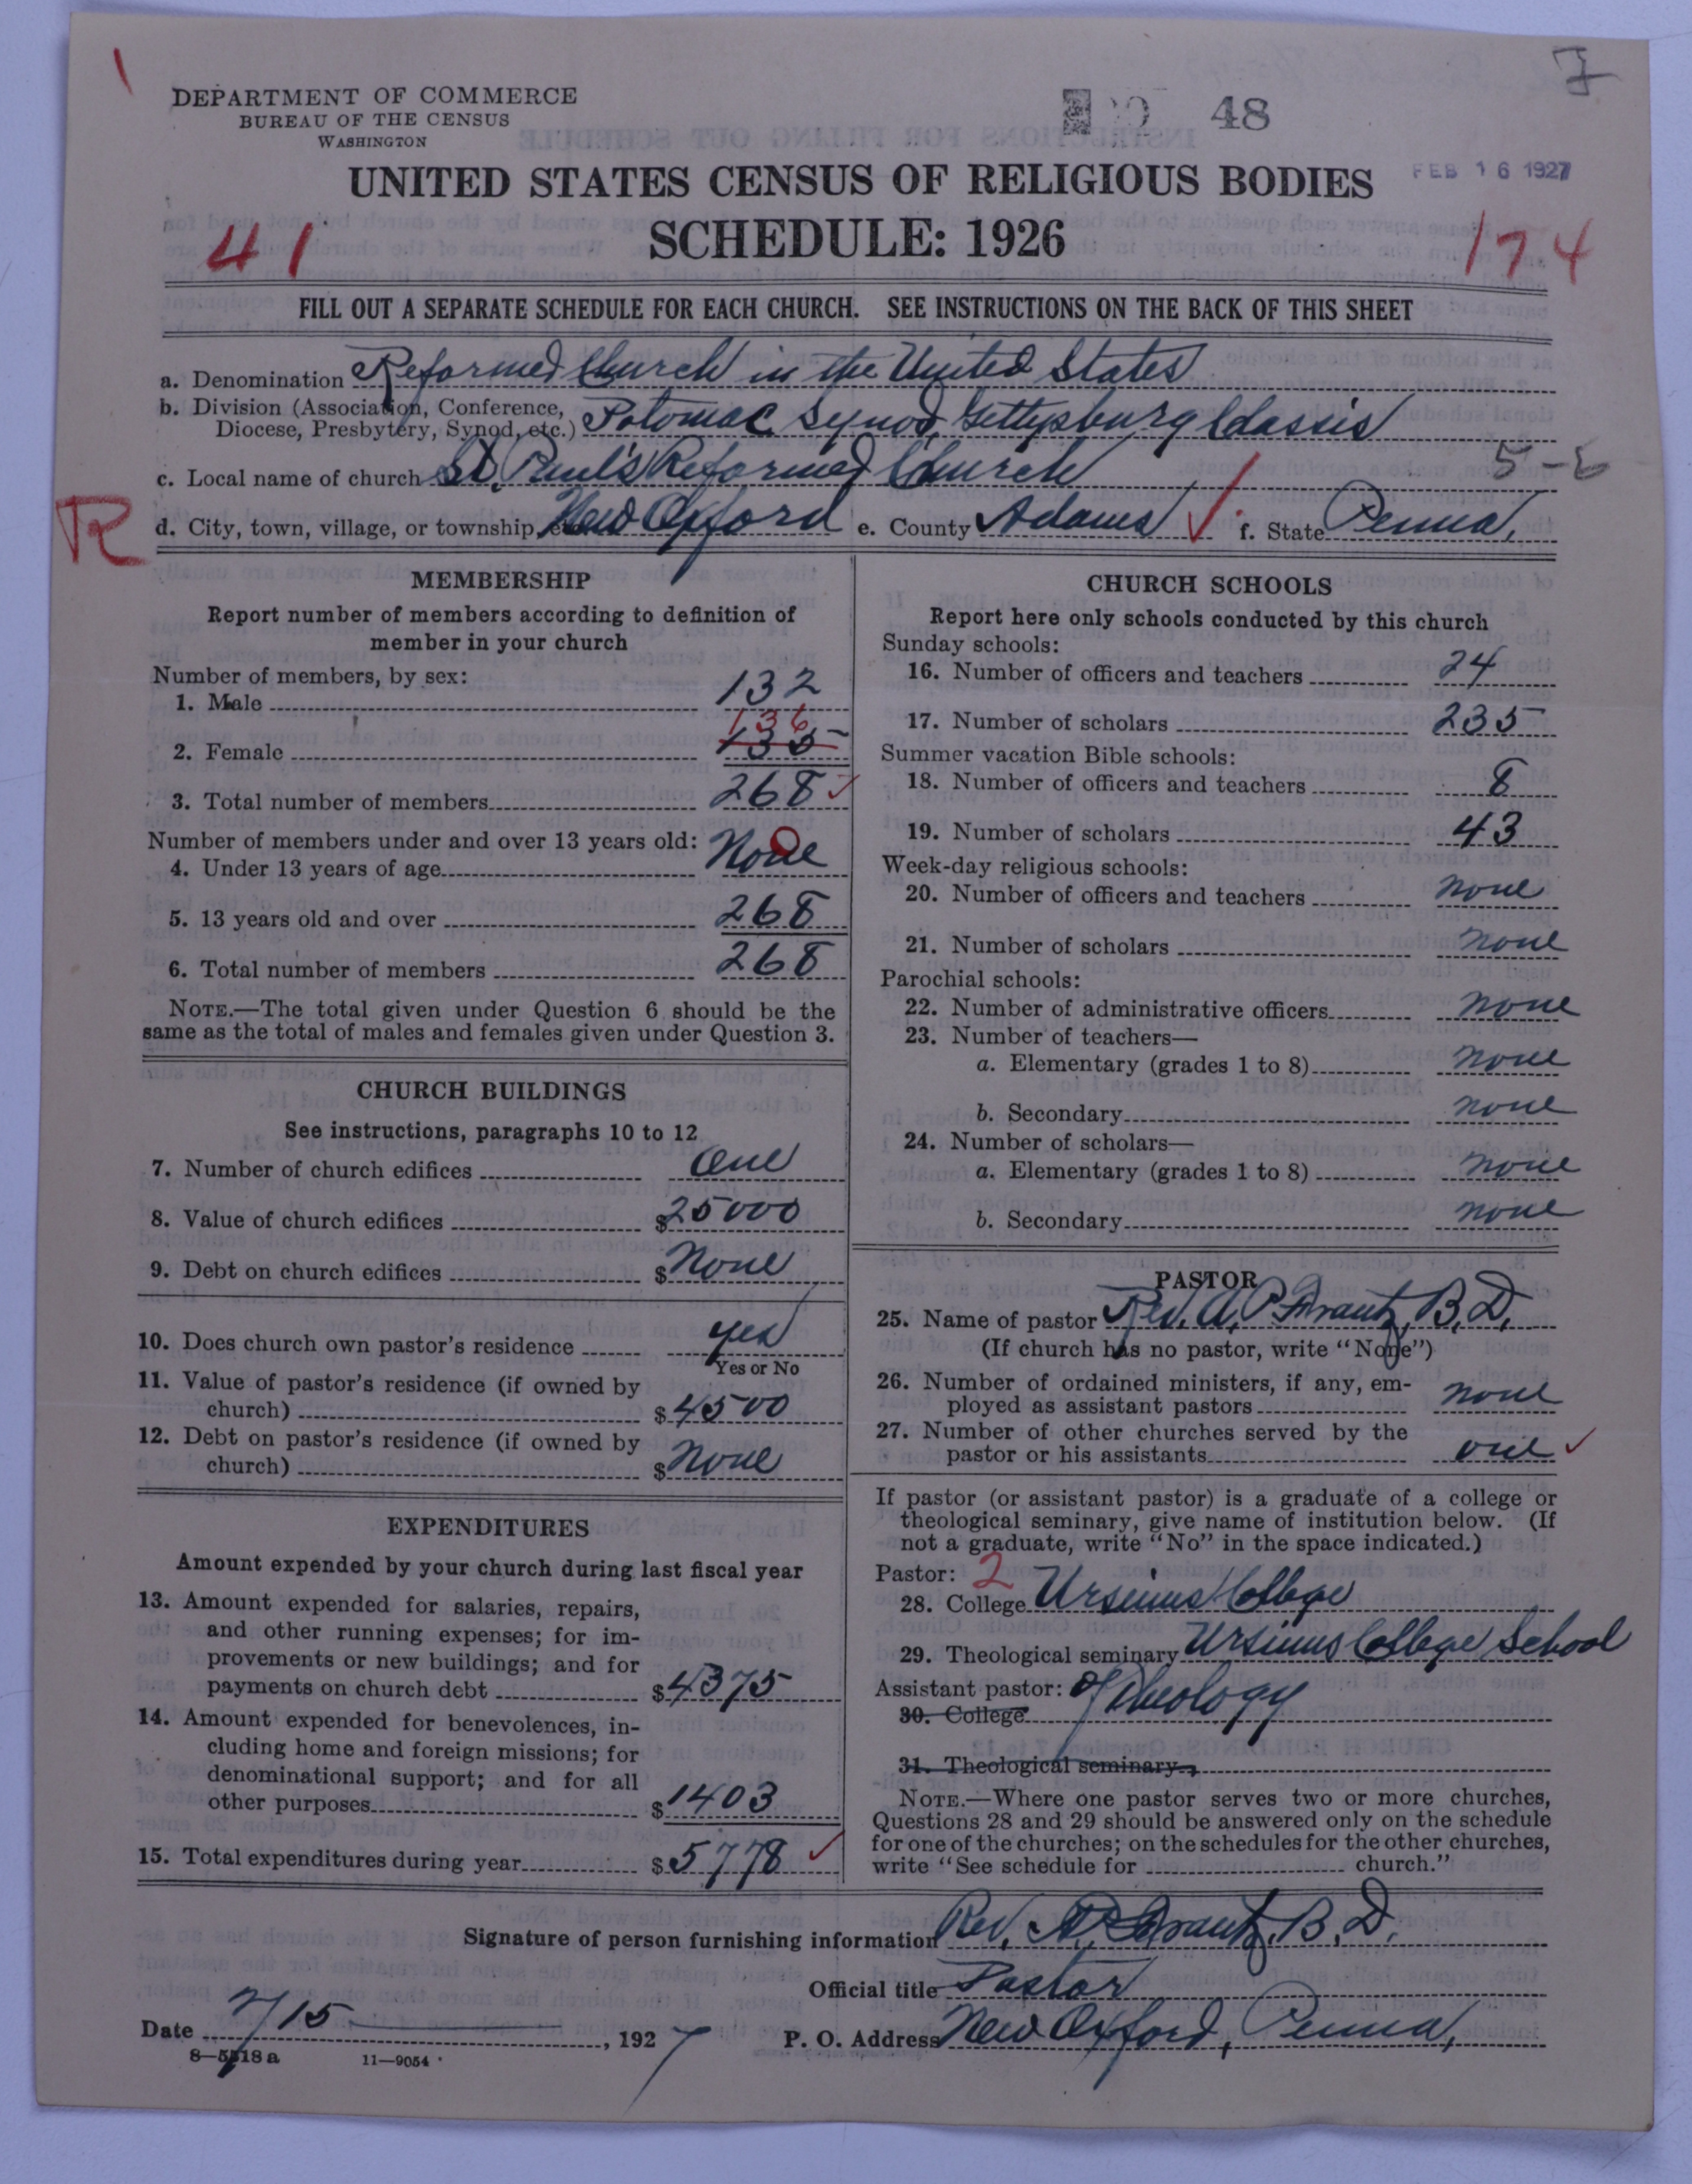 DEPARTMENT OF COMMERCE
BUREAU OF THE CENSUS
WASHINGTON
48
FEB 16 1927
UNITED STATES CENSUS OF RELIGIOUS BODIES
SCHEDULE: 1926
41
174
FILL OUT A SEPARATE SCHEDULE FOR EACH CHURCH. SEE INSTRUCTIONS ON THE BACK OF THIS SHEET
a. Denomination Reformed Church in the United States
b. Division (Association, Conference, Diocese, Presbytery, Synod, etc.) Potomac Synod, Gettysburg Classis
c. Local name of church St. Paul's Reformed Church
R
d. City, town, village, or township, etc. New Oxford e. County Adams f. State Penna.
MEMBERSHIP
Report number of members according to definition of
member in your church
Number of members, by sex:
1. Male 132
136
2. Female 135
3. Total number of members 268
Number of members under and over 13 years old: 0
4. Under 13 years of age None
5. 13 years old and over 268
6. Total number of members 268
NOTE.—The total given under Question 6 should be the
same as the total of males and females given under Question 3.
CHURCH BUILDINGS
See instructions, paragraphs 10 to 12
7. Number of church edifices One
8. Value of church edifices $25000
9. Debt on church edifices $None
10. Does church own pastor's residence yes
Yes or No
11. Value of pastor's residence (if owned by
church) $4500
12. Debt on pastor's residence (if owned by
church) $None
EXPENDITURES
Amount expended by your church during last fiscal year
13. Amount expended for salaries, repairs,
and other running expenses; for im-
provements or new buildings; and for
payments on church debt $4375
14. Amount expended for benevolences, in-
cluding home and foreign missions; for
denominational support; and for all
other purposes $1403
15. Total expenditures during year $5778
CHURCH SCHOOLS
Report here only schools conducted by this church
Sunday schools:
16. Number of officers and teachers 24
17. Number of scholars 235
Summer vacation Bible schools:
18. Number of officers and teachers 8
19. Number of scholars 43
Week-day religious schools:
20. Number of officers and teachers none
21. Number of scholars none
Parochial schools:
22. Number of administrative officers none
23. Number of teachers—
a. Elementary (grades 1 to 8) none
b. Secondary none
24. Number of scholars—
a. Elementary (grades 1 to 8) none
b. Secondary none
PASTOR
25. Name of pastor Rev. A. P. Frantz, B. D.
(If church has no pastor, write "None")
26. Number of ordained ministers, if any, em-
ployed as assistant pastors none
27. Number of other churches served by the
pastor or his assistants one
If pastor (or assistant pastor) is a graduate of a college or
theological seminary, give name of institution below. (If
not a graduate, write "No" in the space indicated.)
Pastor: 2
28. College Ursinus College
29. Theological seminary Ursinus College School
Assistant pastor: of Theology
30. College
31. Theological seminary
NOTE.—Where one pastor serves two or more churches,
Questions 28 and 29 should be answered only on the schedule
for one of the churches; on the schedules for the other churches,
write "See schedule for church."
Signature of person furnishing information Rev. A. P. Frantz, B. D.
Official title Pastor
Date 2/15, 1927 P. O. Address New Oxford, Penna.
8—5518 a 11—9054